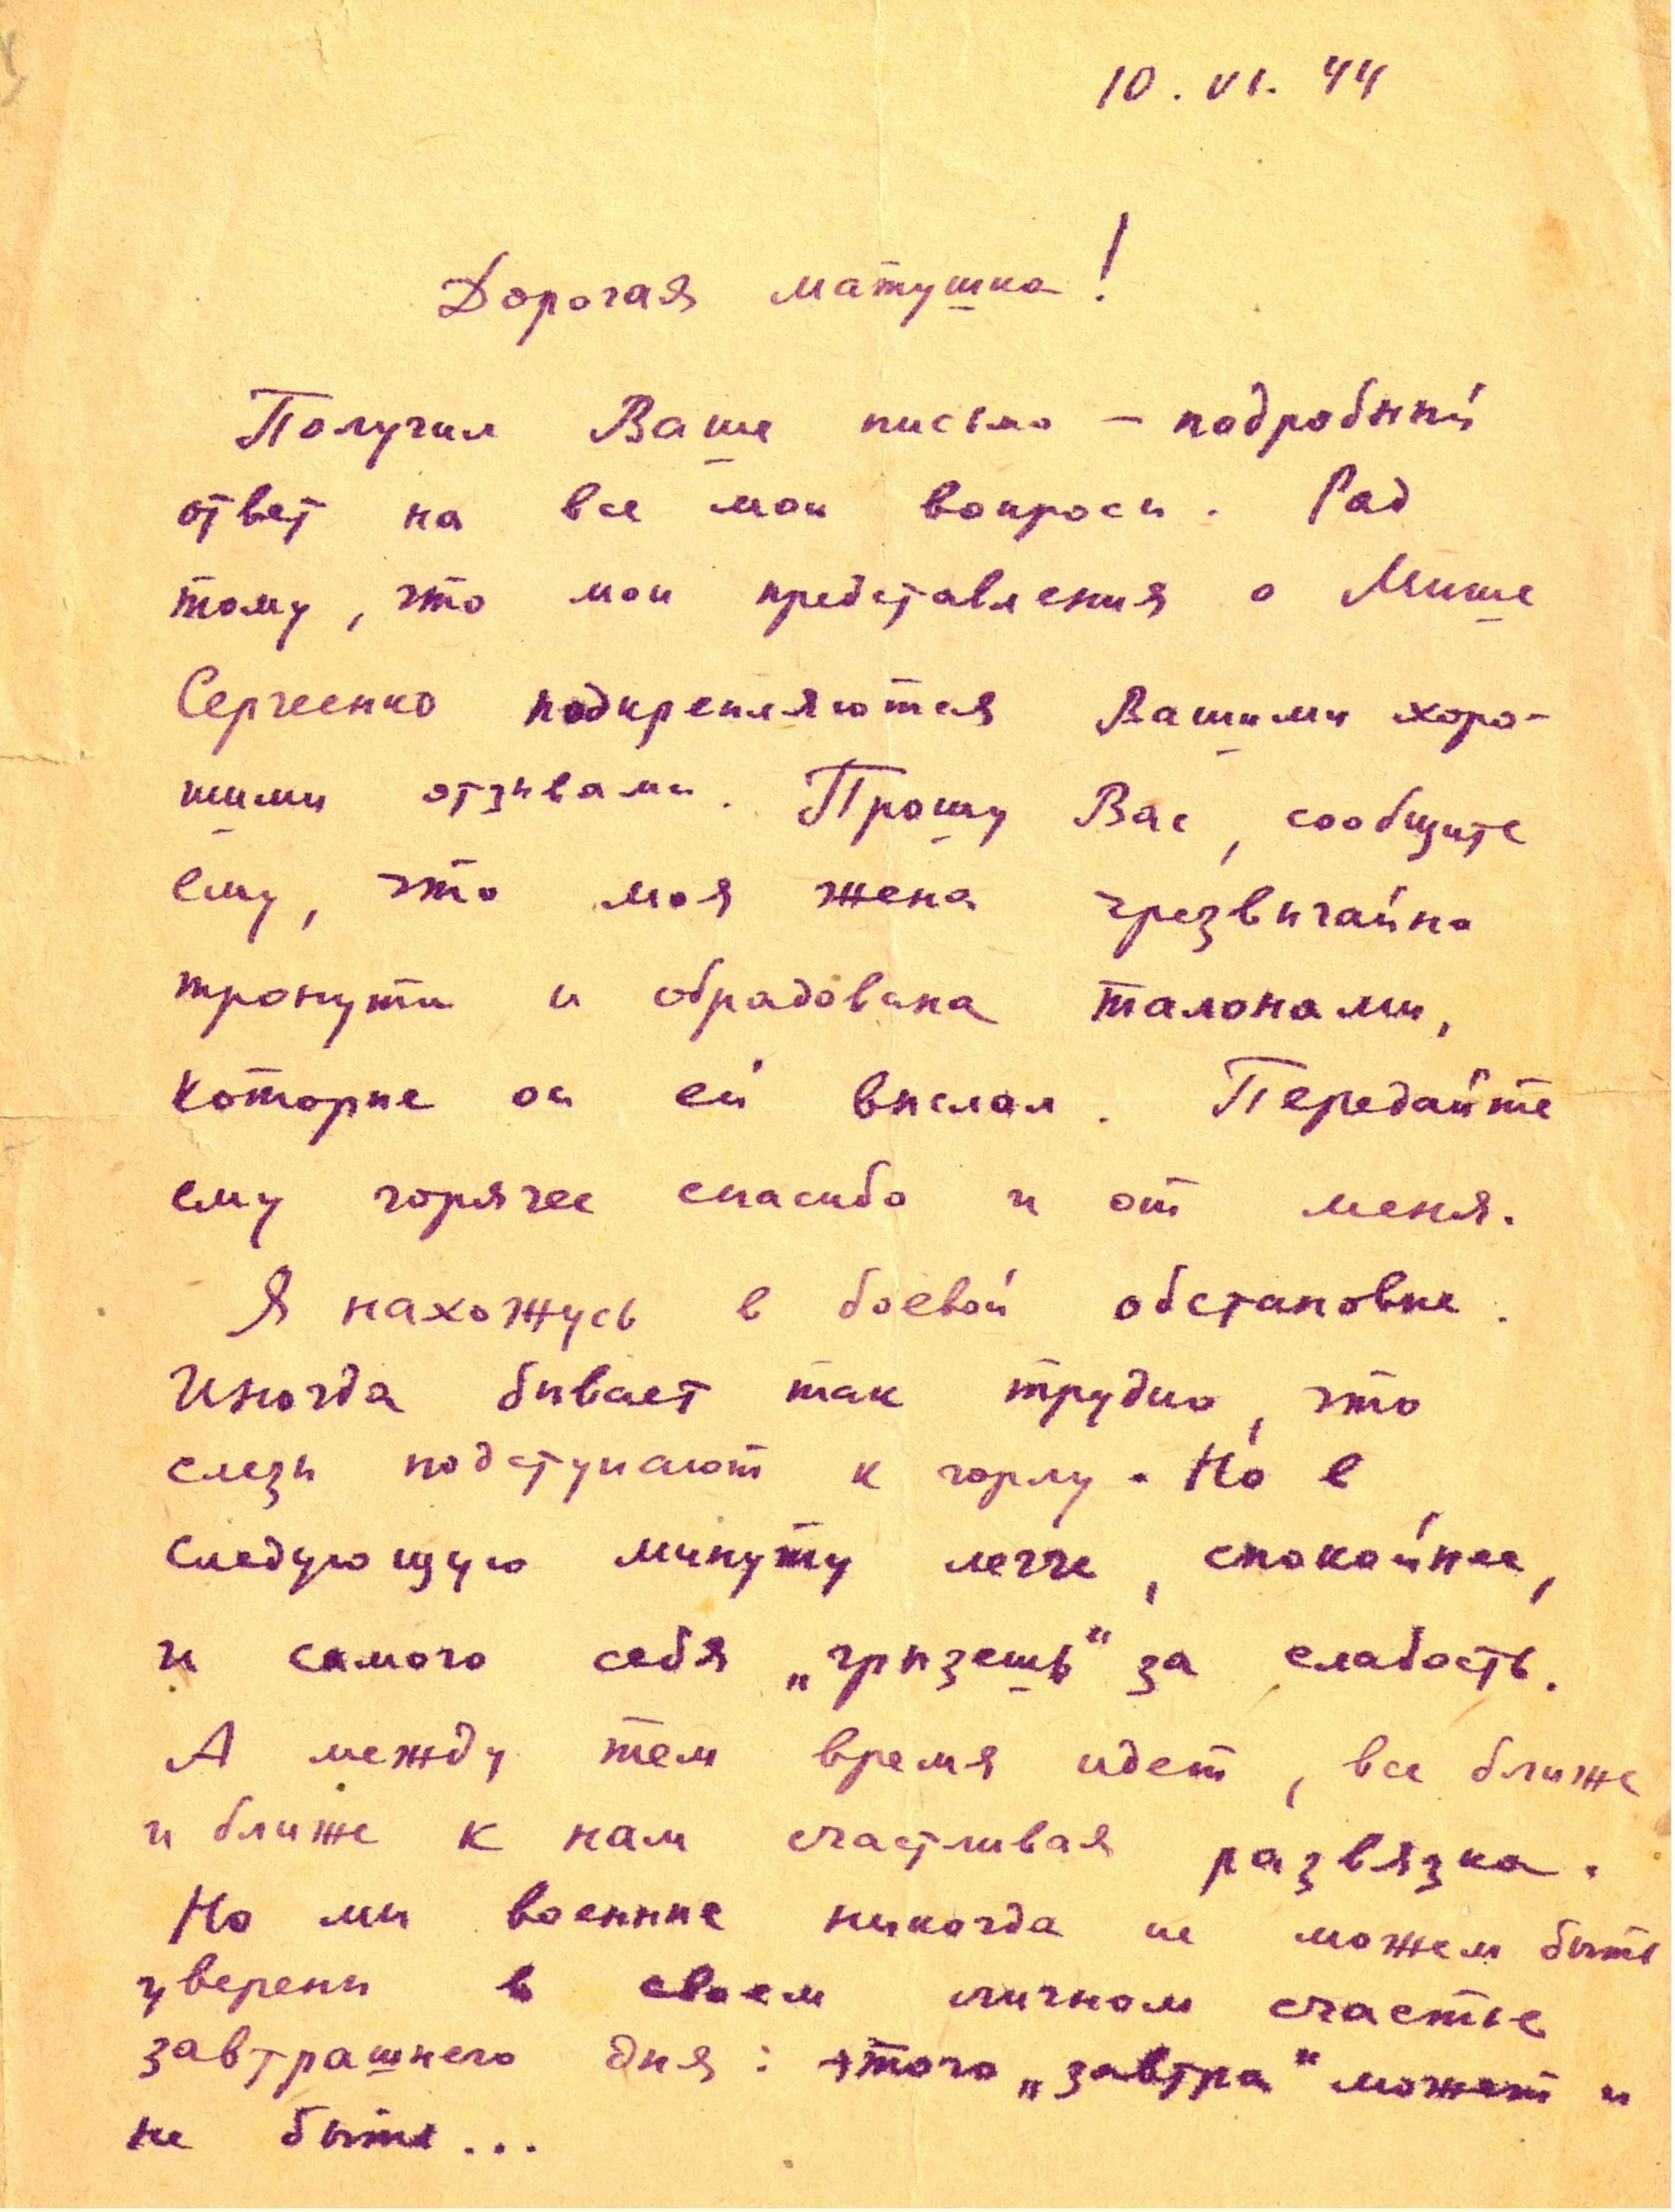 10. VI. 44
Дорогая матушка!
Получил Ваше письмо – подробный
ответ на все мои вопросы. Рад
тому, что мои представления о Мише
Сергеенко подкрепляются Вашими хоро-
шими отзывами. Прошу Вас, сообщите
ему, что моя жена чрезвычайно
тронута и обрадована талонами,
которые он ей выслал. Передайте
ему горячее спасибо и от меня.
Я нахожусь в боевой обстановке.
Иногда бывает так трудно, что
слезы подступают к горлу. Но в
следующую минуту легче, спокойнее,
и самого себя „грызешь“ за слабость.
А между тем время идет, все ближе
и ближе к нам счастливая развязка.
Но мы военные никогда не можем быть
уверены в своем личном счастье
завтрашнего дня: этого „завтра“ может и
не быть...